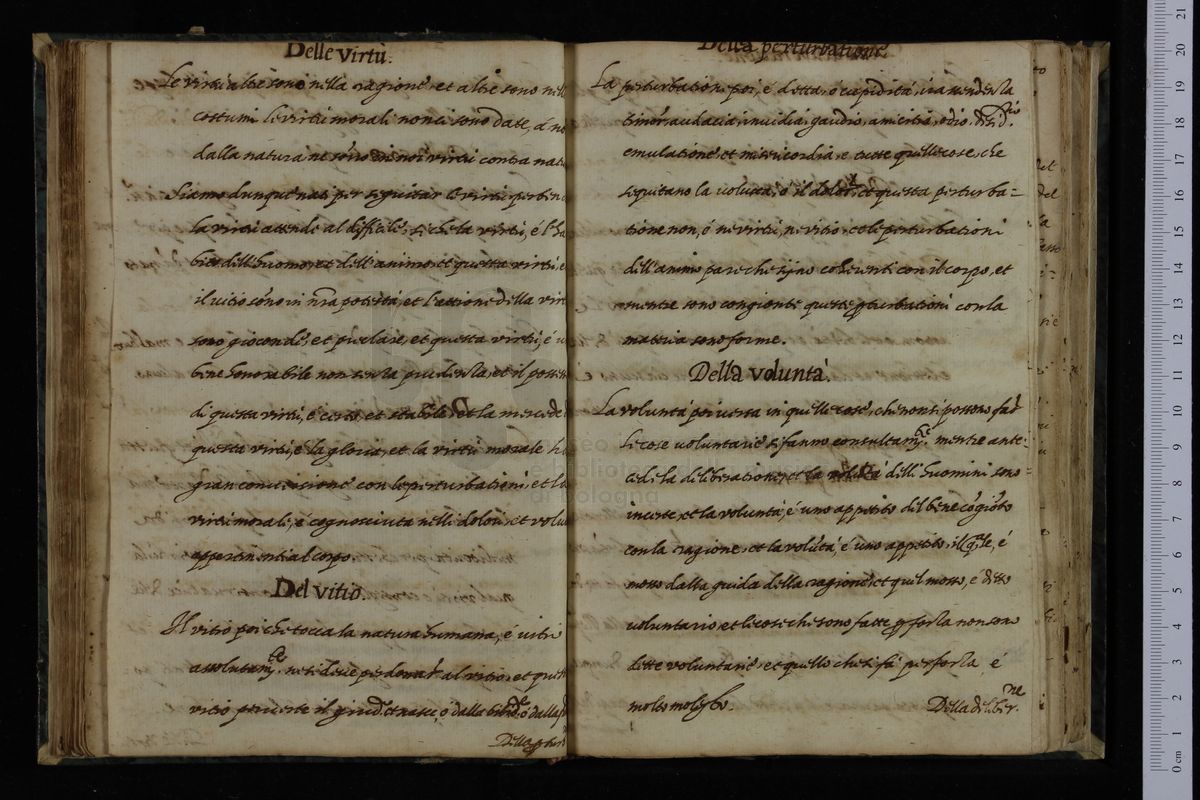 Delle virtù.
Le virtù altre sono nella ragione, et altre sono nell
costumi. Le virtù morali non ci sono date, ò no
dalla natura ne sono in noi virtù contra natu
Siamo dunque nati per seguitar le virtù perben
la virtù attende al difficile, si che la virtù, é l'ha
bito dell'huomo, et dell'animo, et questa virtù, e
il vitio sono in nra potestà, et l'attione della vir
sono gioconde, et preclare, et questa virtù, é u
bene honorabile non senza prudenza, et il posse
di questa virtù, é certo, et stabile, et la mercede
questa virtù, é la gloria, et la virtù morale h
gran con le perturbationi, et l
virtù morali, é cognosciuta nelli dolori, et volu
appertinenti al corpo.
Del vitio.
Il vitio poi che tocca la natura humana, é
assolutamte, ne si deve perdonar al vitio, et quest
vitio perverte il giud. et nasce, ò dalle ò dalla
Della
Della perturbatione
La perturbatione poi, é detta, ò cupidità, ira
timor, audacia, invidia, gaudio, amicitia, odio,
emulatione, et misericordia, e tutte quelle cose, che
seguitano la voluttà, ò il dolor, et questa perturba=
tione non, é ne virtù, ne vitio, et le perturbationi
dell'animo pare che sijno coherenti con il corpo, et
mentre sono congionte queste perturbationi con la
materia sono forme.
Della voluntà.
La voluntà poi versa in quelle cose, che non si possono far
le cose voluntarie si fanno consultamte mentre ante=
cede la deliberatione, et la dell'huomini sono
incerte, et la voluntà, é uno appetito del bene cogioto
con la ragione, et la volutà, é uno appetito, il qle, é
mosso dalla guida della ragione, et quel motto, é detto
voluntario, et le cose che sono fatte p forza non sono
dette voluntarie, et quello che si fà per forza, é
molto molesto.
Della deliber.ne